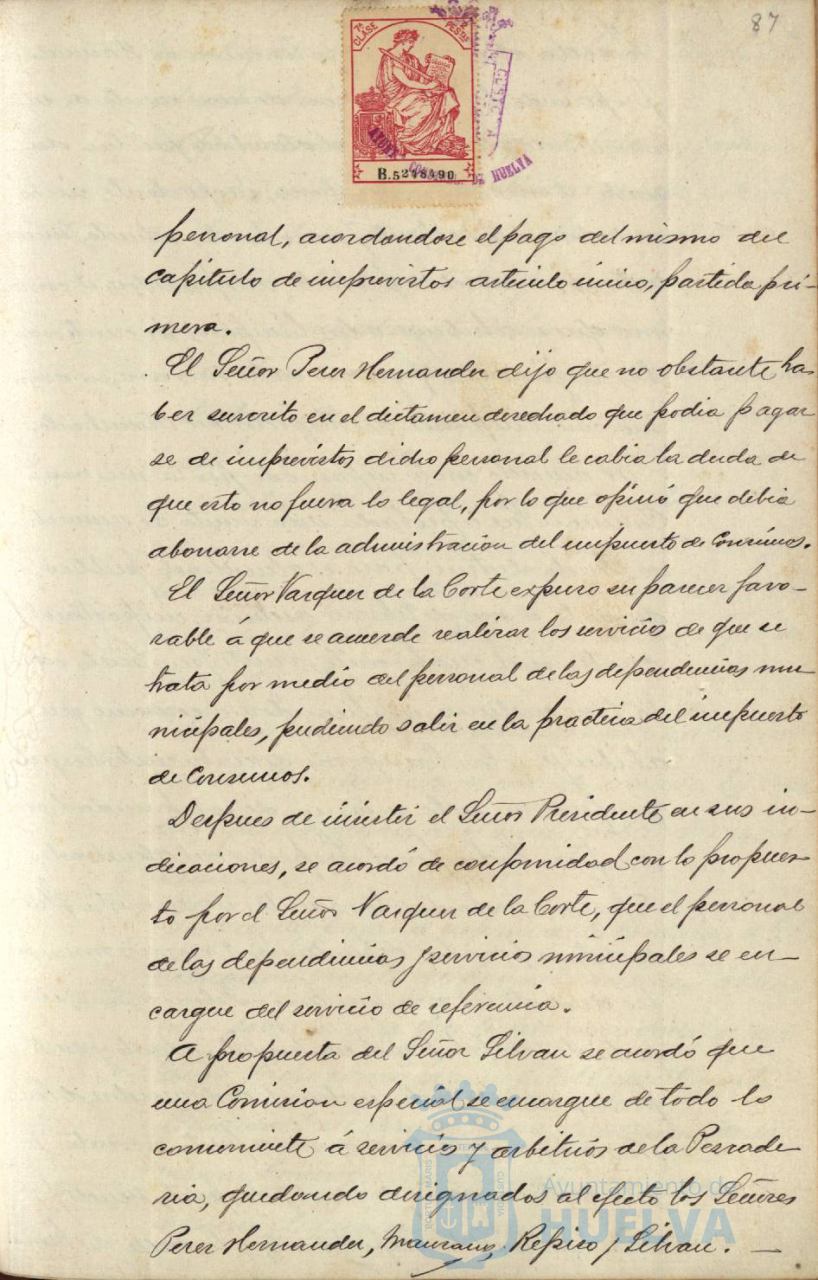 87
7ª CLASE
2 PESETAS
B.5248490
HUELVA
personal, acordandose el pago del mismo del
capitulo de imprevistos articulo único, partida pri-
mera.
El Señor Perez Hernandez dijo que no obstante ha-
ber suscrito en el dictamen desechado que podia pagar
se de imprevistos dicho personal le cabia la duda de
que esto no fuera lo legal, por lo que opinó que debia
abonarse de la administración del impuesto de Consumos.
El Señor Vazquez de la Corte expuso su parecer favo-
rable á que se acuerde realizar los servicios de que se
trata por medio del personal de las dependencias mu-
nicipales, pudiendo salir en la practica del impuesto
de Consumos.
Despues de insistir el Señor Presidente en sus in-
dicaciones, se acordó de conformidad con lo propues-
to por el Señor Vazquez de la Corte, que el personal
de las dependencias y servicios municipales se en-
cargue del servicio de referencia.
A propuesta del Señor Silvan se acordó que
una Comision especial se encargue de todo lo
concerniente á servicios y arbitrios de la Pescade
ria, quedando designados al efecto los Señores
Perez Hernandez, Manzano, Repiso y Silvan.
Ayuntamiento de
HUELVA